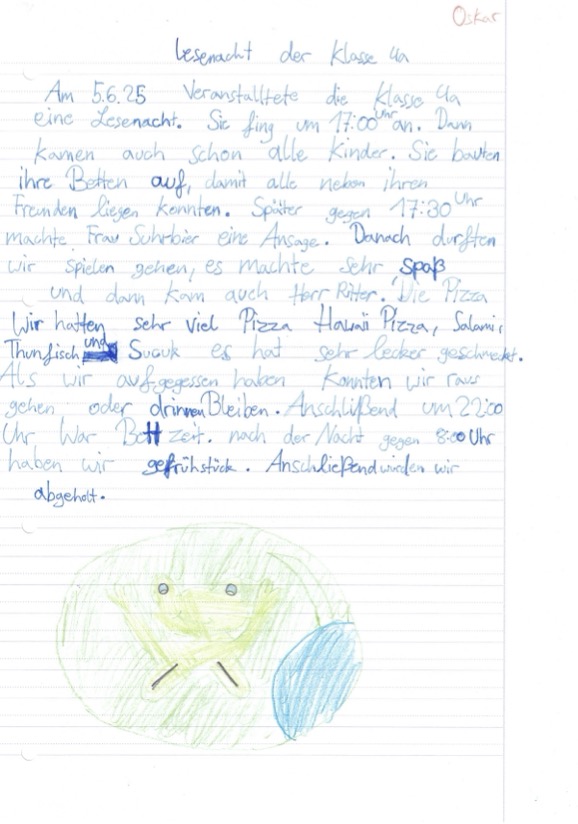 Oskar
Lesenacht der Klasse 4a
Am 5.6.25 Veranstalltete die Klasse 4a
eine Lesenacht. Sie fing um 17:00 Uhr an. Dann
kamen auch schon alle Kinder. Sie bauten
ihre Betten auf, damit alle neben ihren
Freunden liegen konnten. Später gegen 17:30 Uhr
machte Frau Suhrbier eine Ansage. Danach durften
wir spielen gehen, es machte sehr Spaß
und dann kam auch Herr Ritter. Die Pizza
Wir hatten sehr viel Pizza Hawaii Pizza, Salami,
Thunfisch und Sucuk es hat sehr lecker geschmeckt.
Als wir aufgegessen haben konnten wir raus
gehen oder drinnen Bleiben. Anschlißend um 22:00
Uhr War Bett zeit. nach der Nacht gegen 8:00 Uhr
haben wir gefrühstück. Anschließend wurden wir
abgeholt.